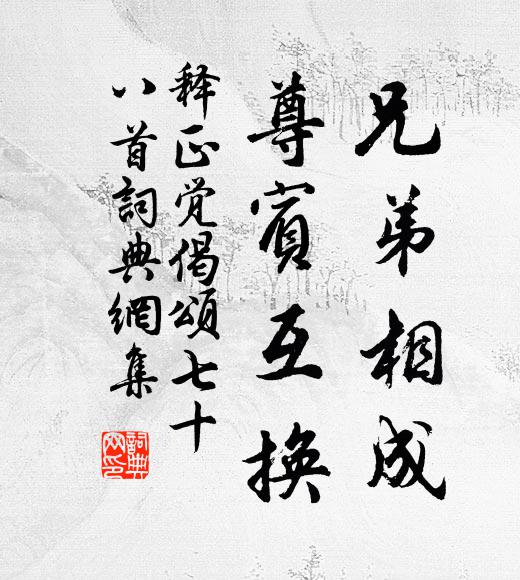 兄弟相成
尊賓互換
释正觉偈頌七十
八首詞典網集
詞典网印